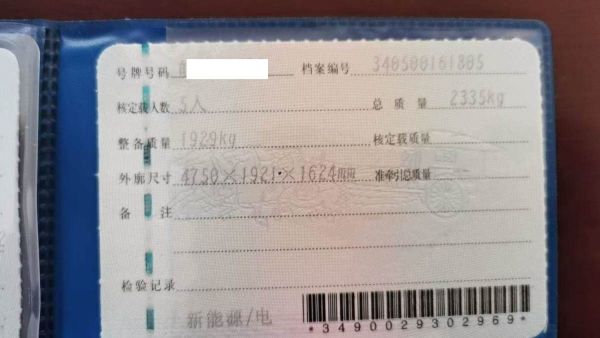 号牌号码 档案编号 340500161805
核定载人数 5人 总质量 2335kg
整备质量 1929kg 核定载质量
外廓尺寸 4750×1921×1624mm 准牵引总质量
备注
检验记录
新能源/电
*3490029302969*